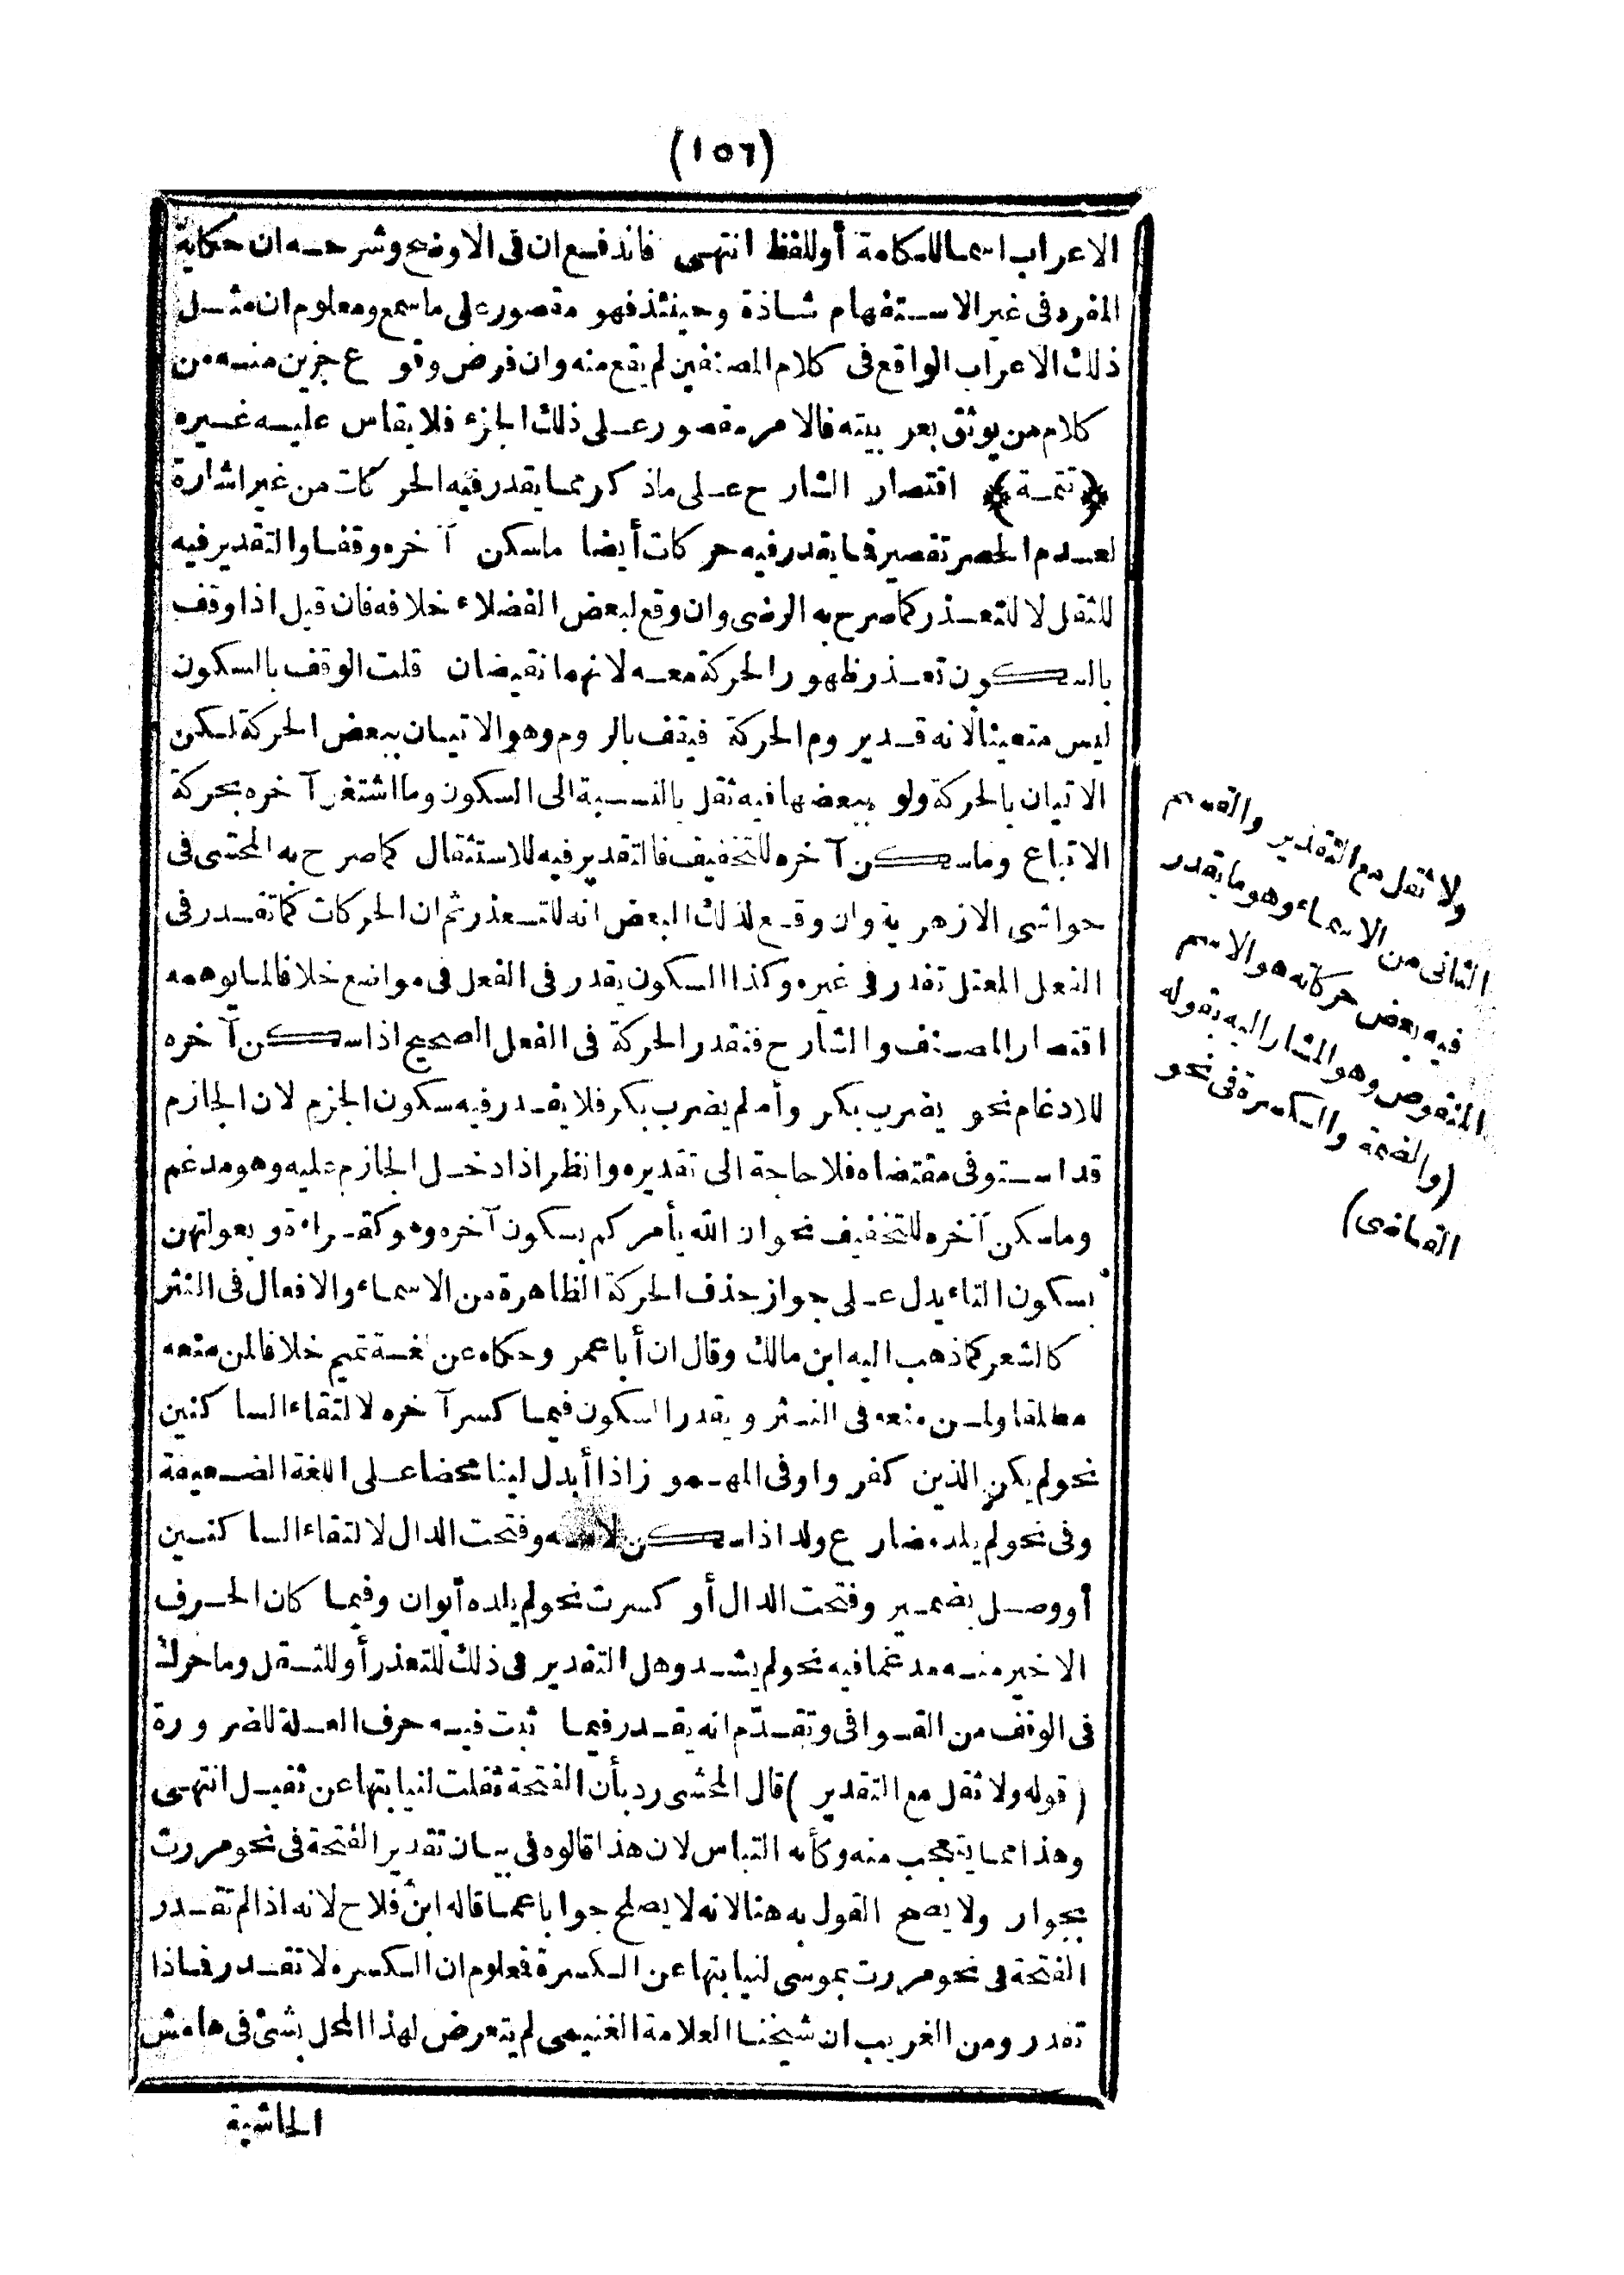 (١٥٦)
الاعراب اسما للكلمة أو للفظ انتهى فاندفع ان فى الاوضح وشرحه ان حكاية
المفرد فى غير الاستفهام شاذة وحينئذ فهو مقصور على ما سمع ومعلوم ان مثل
ذلك الاعراب الواقع فى كلام المصنفين لم يقع منه وان فرض وقوع جزء من منه من
كلام من يوثق بعربيته فالامر مقصور على ذلك الجزء فلا يقاس عليه غيره
﴿تتمة﴾ اقتصار الشارح على ماذكر مما يقدر فيه الحركات من غير اشارة
لعدم الحصر تقصير فما يقدر فيه حركات أيضا ماسكن آخره وقفا والتقدير فيه
للثقل لا للتعذر كما صرح به الرضى وان وقع لبعض الفضلاء خلافه فان قيل اذا وقف
بالسكون تعذر ظهور الحركة معه لانهما نقيضان قلت الوقف بالسكون
ليس متعينا لانه قد يروم الحركة فيقف بالروم وهو الاتيان ببعض الحركة لكن
الاتيان بالحركة ولو ببعضها فيه ثقل بالنسبة الى السكون وما اشتغل آخره بحركة
الاتباع وماسكن آخره للتخفيف فالتقدير فيه للاستثقال كما صرح به المحشى فى
حواشى الازهرية وان وقع لذلك البعض انه للتعذر ثم ان الحركات كما تقدر فى
الفعل المعتل تقدر فى غيره وكذا السكون يقدر فى الفعل فى مواضع خلافا لما يوهمه
اقتصار المصنف والشارح فتقدر الحركة فى الفعل الصحيح اذا سكن آخره
للادغام نحو يضرب بكر وأما لم يضرب بكر فلا يقدر فيه سكون الجزم لان الجازم
قد استوفى مقتضاه فلا حاجة الى تقديره وانظر اذا دخل الجازم عليه وهو مدغم
وماسكن آخره للتخفيف نحو ان الله يأمركم بسكون آخره وهو كقراءة وبعولتهن
بسكون التاء يدل على جواز حذف الحركة الظاهرة من الاسماء والافعال فى النثر
كالشعر كما ذهب اليه ابن مالك وقال ان أبا عمر وحكاه عن لغة تميم خلافا لمن منعه
مطلقا ولمن منعه فى النثر ويقدر السكون فيما كسر آخره لالتقاء الساكنين
نحو لم يكن الذين كفروا وفى المهموز اذا أبدل لينا محضا على اللغة الضعيفة
وفى نحو لم يلد مضارع ولد اذا سكن لامه وفتحت الدال لالتقاء الساكنين
أو وصل بضمير وفتحت الدال أو كسرت نحو لم يلده أبوان وفيما كان الحرف
الاخير منه مدغما فيه نحو لم يشد وهل التقدير فى ذلك للتعذر أو للثقل وما حرك
فى الوقف من القوافى وتقدّم انه يقدر فيما ثبت فيه حرف العلة للضرورة
(قوله ولا ثقل مع التقدير) قال المحشى رد بأن الفتحة ثقلت لنيابتها عن ثقيل انتهى
وهذا مما يتعجب منه وكأنه التباس لان هذا قالوه فى بيان تقدير الفتحة فى نحو مررت
بجوار ولا يصح القول به هنا لانه لا يصلح جوابا عما قاله ابن فلاح لانه اذا لم تقدر
الفتحة فى نحو مررت بموسى لنيابتها عن الكسرة فمعلوم ان الكسره لا تقدر فماذا
تقدر ومن الغريب ان شيخنا العلامة الغنيمى لم يتعرض لهذا المحل بشئ فى هامش
الحاشية
ولا ثقل مع التقدير والقسم
الثانى من الاسماء وهو ما يقدر
فيه بعض حركاته هو الاسم
المنقوص وهو المشار اليه بقوله
(والضمة والكسرة فى نحو
القاضى)